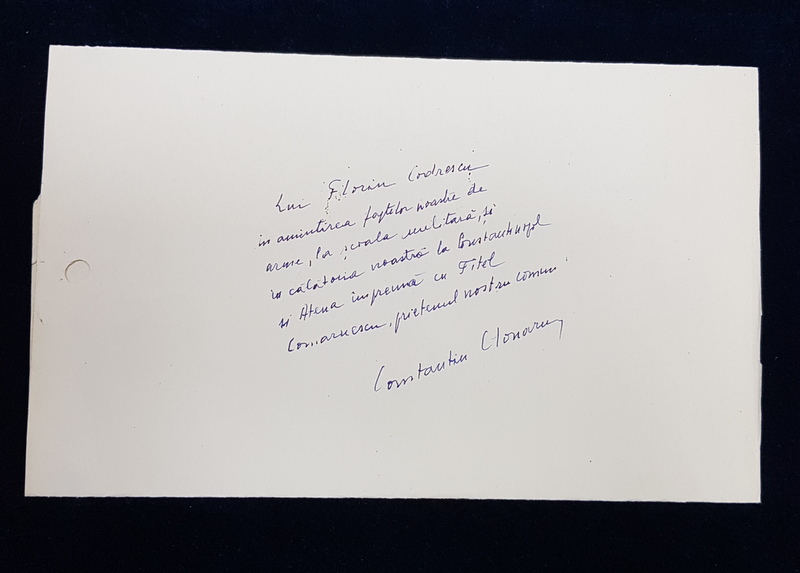 Lui Florin Codrescu
in amintirea faptelor noastre de
arme, la școala militară, și
in călătoria noastră la Constantinopol
si Atena împreună cu Fitol
Comarnescu, prietenul nostru comun.
Constantin Clonaru